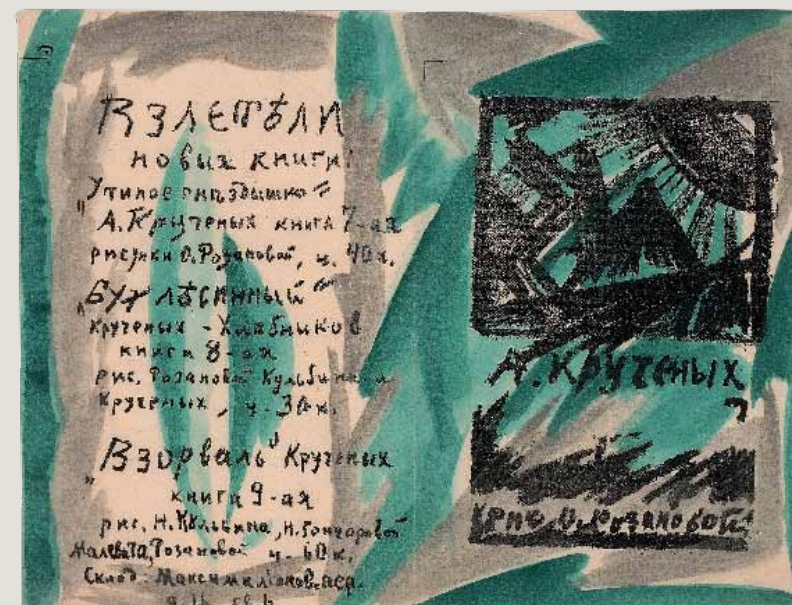 Взлетѣли
новыя книги:
"Утиное гнѣздышко"
А. Крученых книга 7-ая
рисунки О. Розановой, ц. 40 к.
"Бух лѣсинный"
Крученых - Хлѣбников
книга 8-ая
рис. Розановой Кульбина и
Крученых, ц. 30 к.
"Взорваль" Крученых
книга 9-ая
рис. Н. Кульбина, Н. Гончаровой
Малевича, Розановой ц. 60 к.
Склад:
А. Крученых
рис О. Розановой